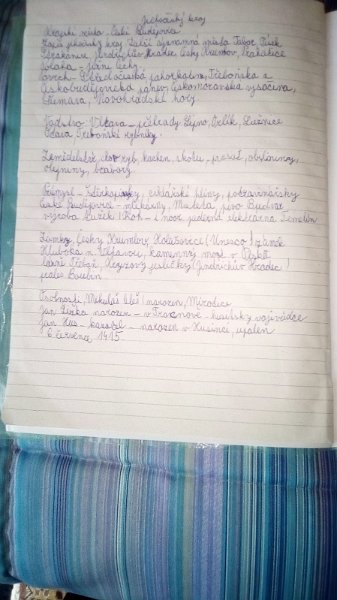 Jihočeský kraj
Krajské město - České Budějovice
Jsou jihočeský kraj. Další významná města Tábor, Písek,
Strakonice, Jindřichův Hradec, Český Krumlov, Prachatice
Poloha - jižní Čechy.
Povrch - Středočeská pahorkatina, Třeboňská a
Českobudějovická pánev, Českomoravská vysočina,
Šumava, Novohradské hory
Vltava - přehrady Lipno, Orlík, Lužnice
Otava Třeboňské rybníky.
Zemědělství, chov ryb, kachen, skotu, prasat, obiloviny,
olejniny, brambory
Průmysl -
České Budějovice - mlékárny, Madeta, pivo Budvar
výroba tužek Koh-i-noor, jaderná elektrárna Temelín
Zámky, Český Krumlov, Holašovice (Unesco) zámek
Hluboká n. Vltavou, kamenný most v Písku
lázně Třeboň, Krýzovy jesličky (Jindřichův Hradec)
prales Boubín.
Osobnosti, Mikoláš Aleš narozen, Mirotice
Jan Žižka narozen - v Trocnově - husitský vojevůdce
Jan Hus - kazatel - narozen v Husinci, upálen
6 července, 1415.